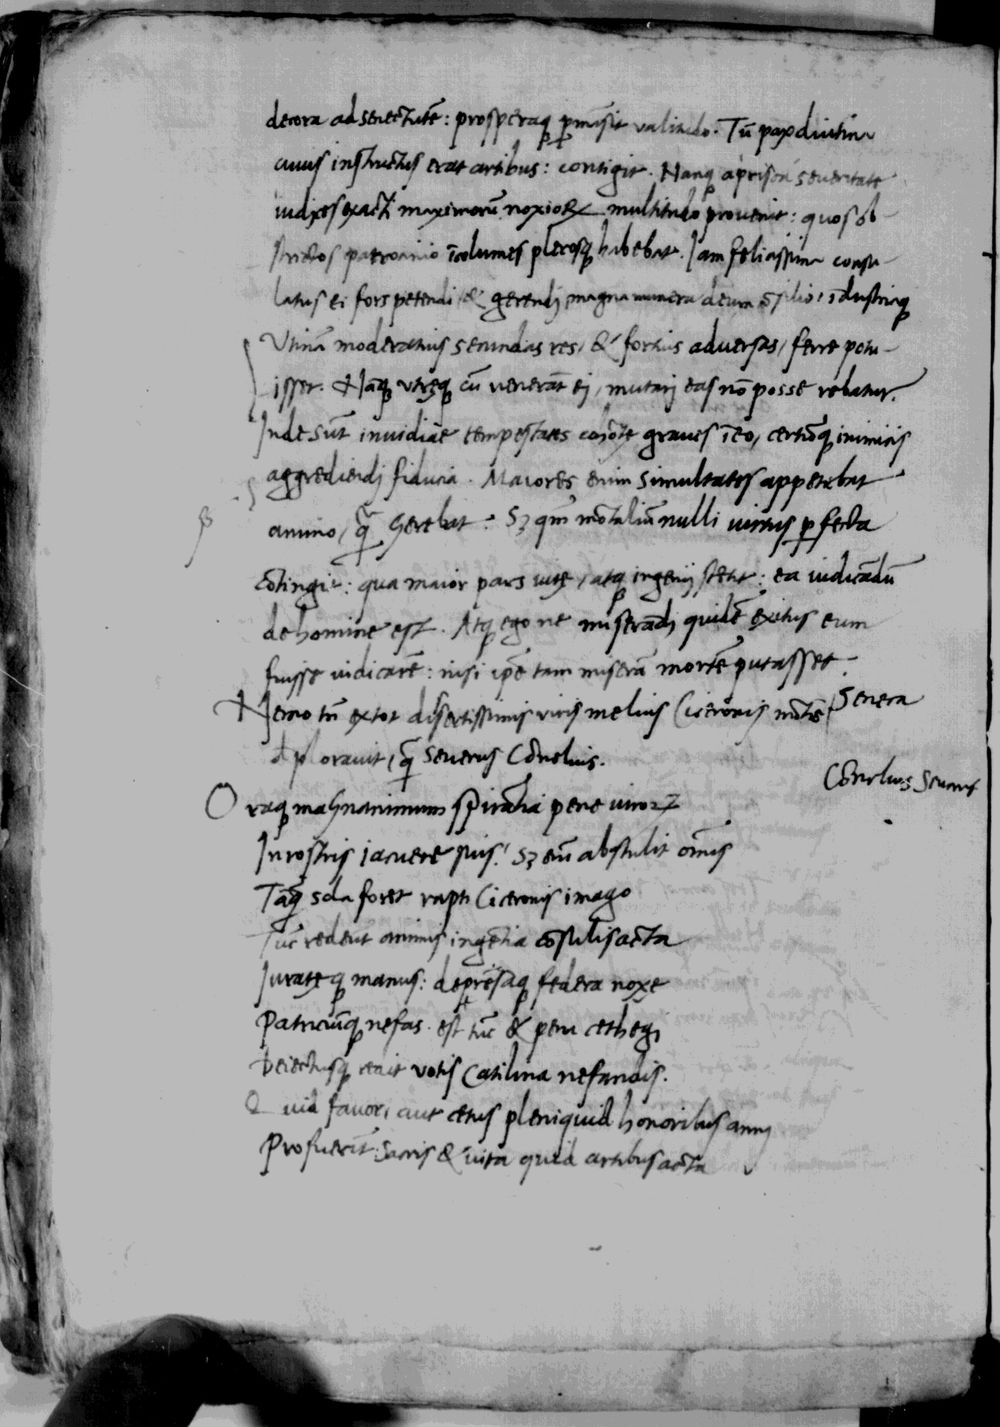 decora ad senectutẽ: prosperaq; pmãsit valitudo. Tũ pax diutina
cuius instructus erat artibus: contigit. Nanq; a prisca severitate
iudices exacti maximorũ noxioꝝ multitudo provenit: quos ob-
strictos patrocinio ĩcolumes plerosq; habebat. Iam felicissima consu-
latus ei fors petendi, & gerendi magna munera deum cõsilio, ĩdustriaq;
Utinã moderatius secundas res, & fortius adversas, ferre potu-
isset. Nãq; utręq; cũ venerãt ei, mutari eas nõ posse rebatur.
Inde sũt invidiae tempestates coorte graves ĩ eo, certiorq; inimicis
aggrediendi fiducia. Maiores enim simultates appetebat
animo, q̃ gerebat: Sȝ qm̃ mortaliũ nulli virtus pfecta
cõtingit: qua maior pars vitę, atq; ingenij stetit: ea iudicãdũ
de homine est. Atq; ego ne miserãdi quidẽ exitus eum
fuisse iudicarẽ: nisi ipẽ tam miserã mortẽ putasset.
Nemo tñ ex tot disertissimis viris melius Ciceronis mortẽ
Seneca
deploravit, q̃ Severus Cornelius.
Cornelius Severus
Oraq; magnanimum spirãtia pene viroꝝ
In rostris iacuere suis: Sȝ enĩ abstulit om̃is
Tãq̃ sola foret rapti Ciceronis imago
Tũc redeũt animis ingẽtia cõsulis acta
Iuratęq; manus: deprẽsaq; federa noxę
Patriciũq; nefas. est tũc & pena cethegi
Deiectusq; redit votis Catilina nefandis.
Quid favor, aut cetus pleni quid honoribus anni
Profuerãt: Sacris & vita quid artibus acta